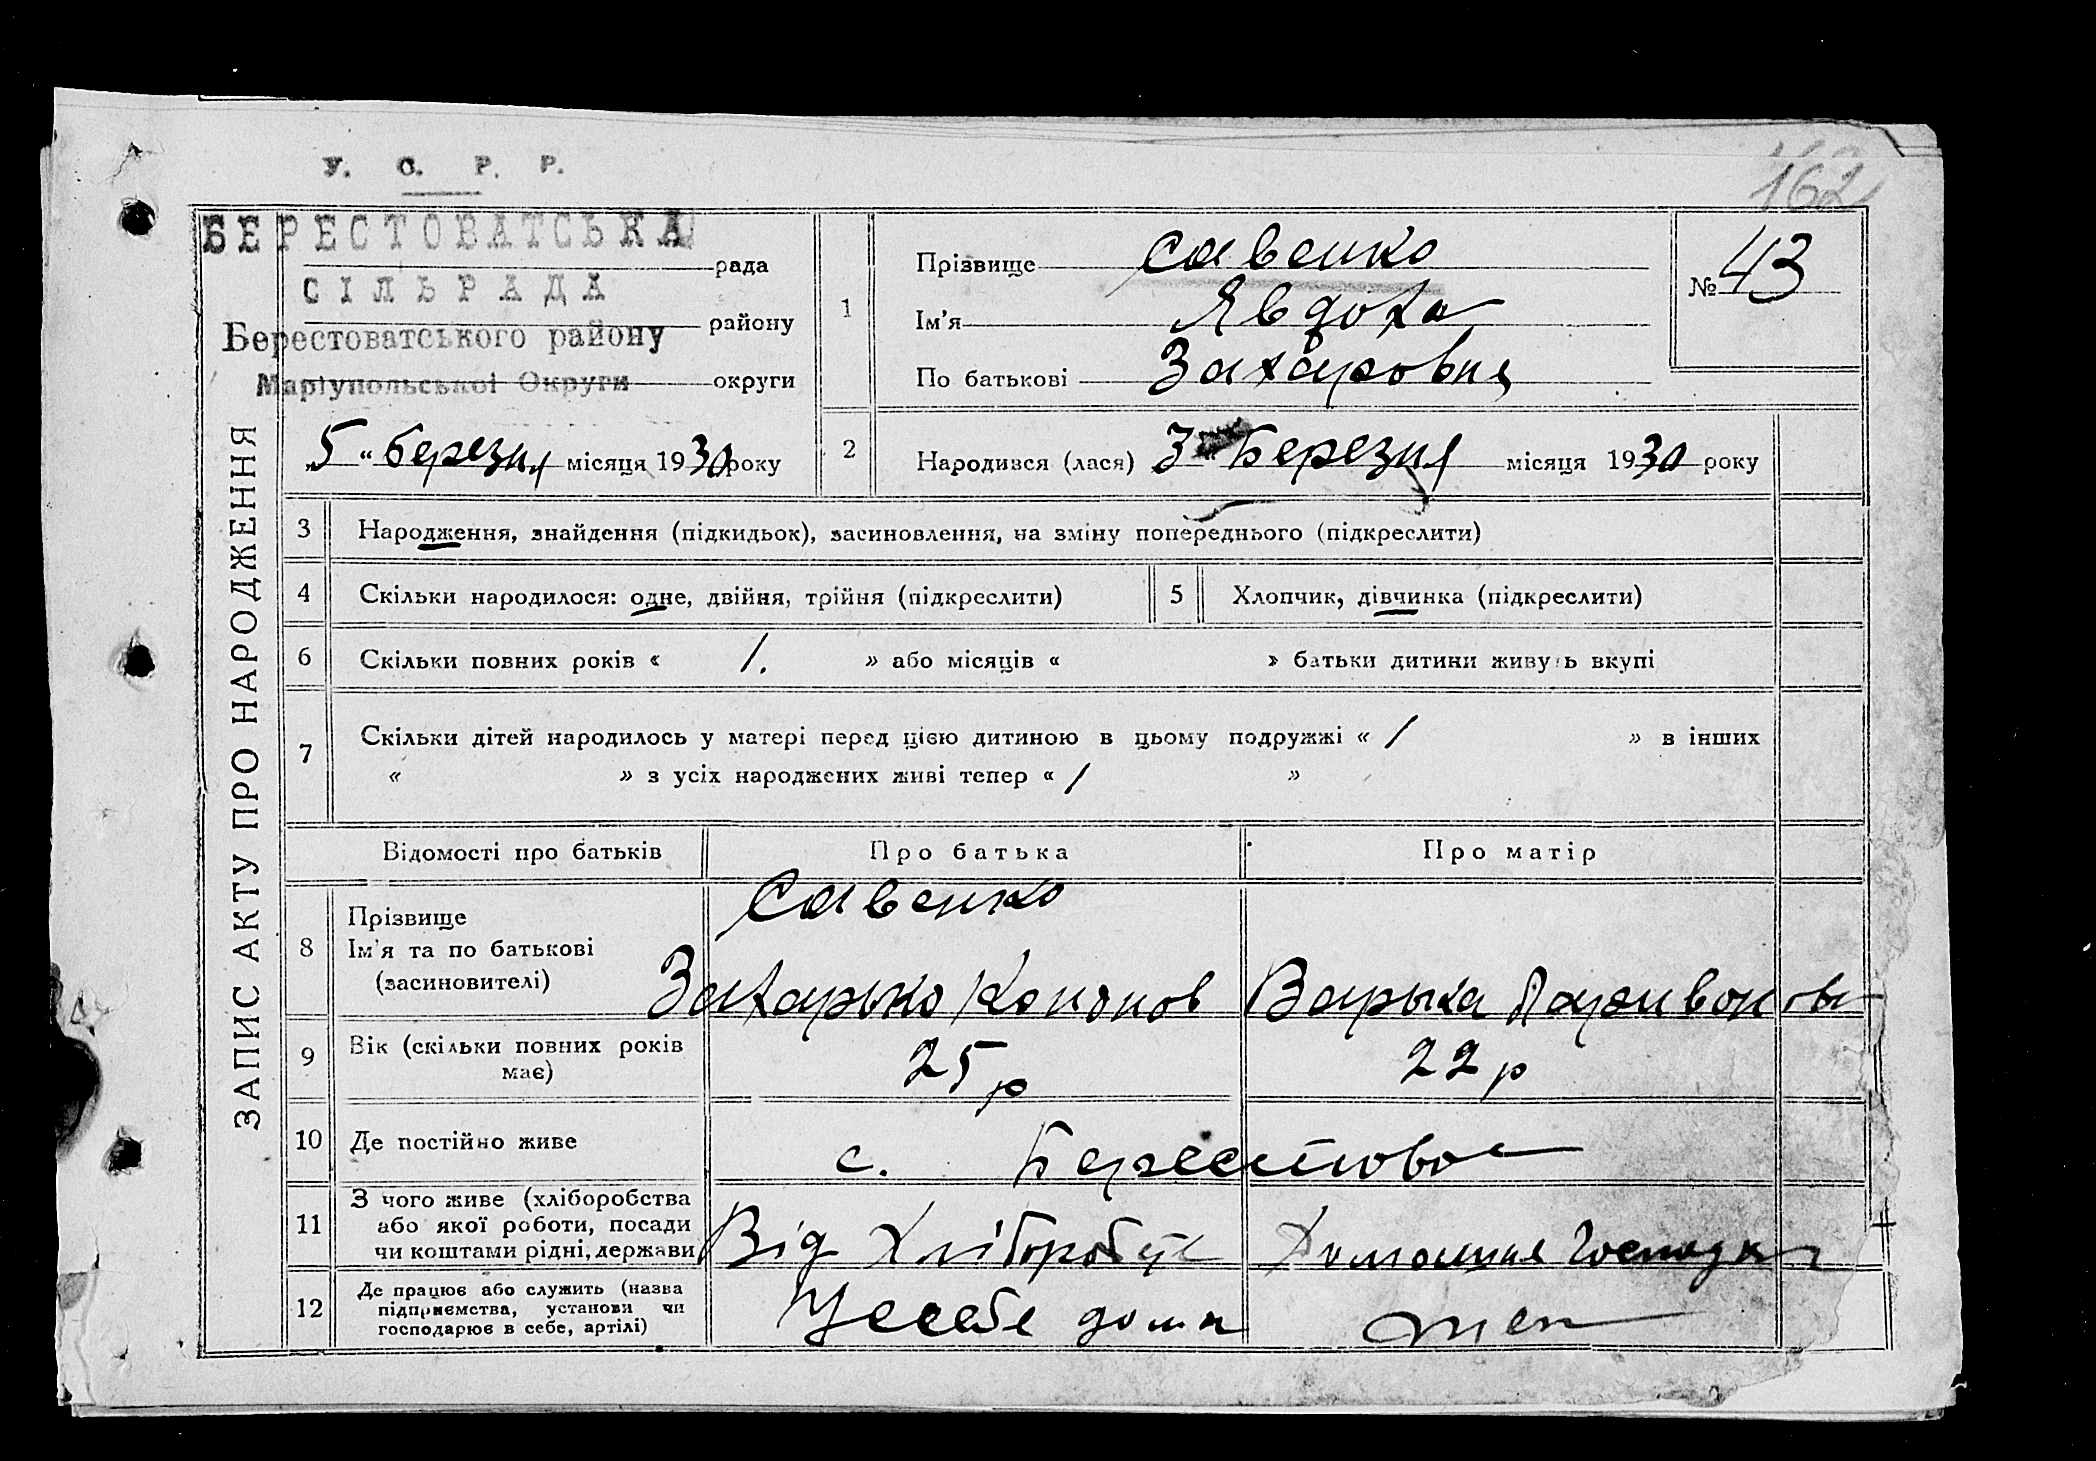 162
У. С. Р. Р.
БЕРЕСТОВАТСЬКА рада
СІЛЬРАДА
району
Берестоватського району
Маріупольської Округи округи
„5“ березня місяця 1930 року
ЗАПИС АКТУ ПРО НАРОДЖЕННЯ
1
Прізвище Савенко
Ім'я Явдоха
По батькові Захаровна
№ 43
2 Народився (лася) 3 „ Березня місяця 1930 року
3 Народження, знайдення (підкидьок), засиновлення, на зміну попереднього (підкреслити)
4 Скільки народилося: одне, двійня, трійня (підкреслити) 5 Хлопчик, дівчинка (підкреслити)
6 Скільки повних років « 1. » або місяців « » батьки дитини живуть вкупі
7 Скільки дітей народилось у матері перед цією дитиною в цьому подружжі « 1 » в інших
« » з усіх народжених живі тепер « 1 »
Відомості про батьків Про батька Про матір
8 Прізвище
Ім'я та по батькові
(засиновителі)
Савенко
Захарько Кононов Варька
9 Вік (скільки повних років
має)
25 р 22 р
10 Де постійно живе с. Берестовое
11 З чого живе (хліборобства
або якої роботи, посади
чи коштами рідні, держави
Від Хліборобст Домашня Господар
12 Де працює або служить (назва
підприємства, установи чи
господарює в себе, артілі)
Усебе дома